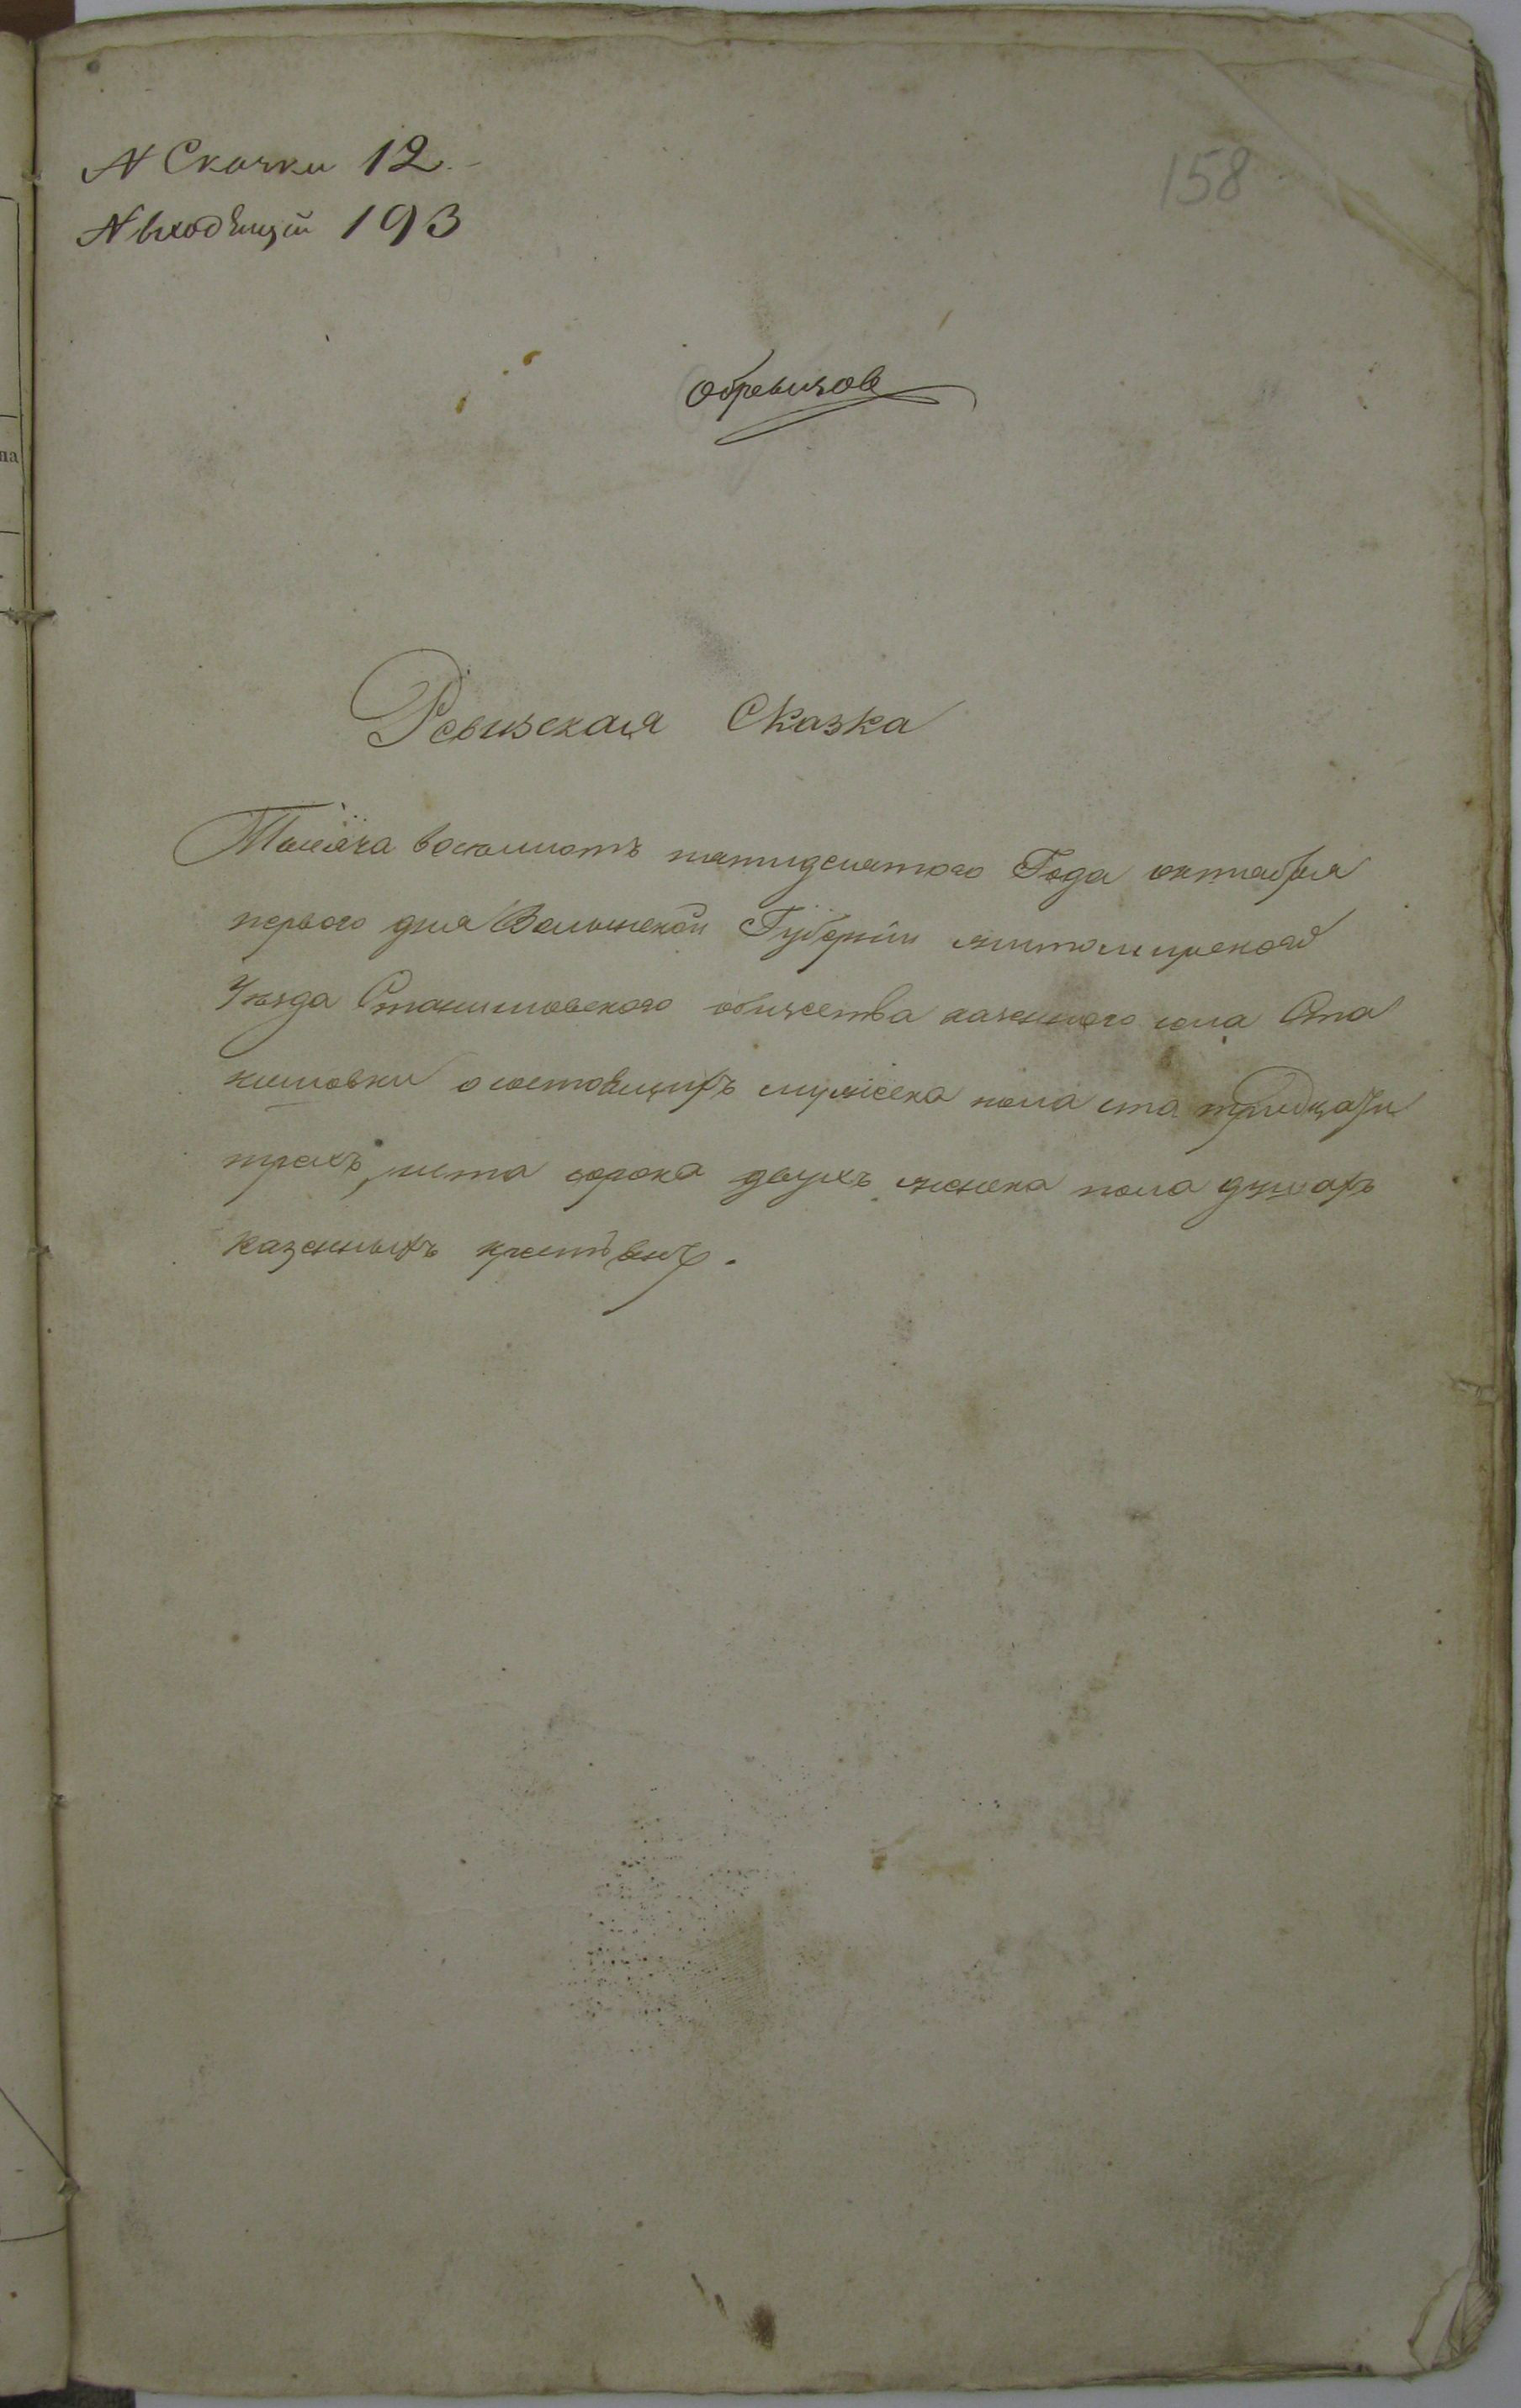 N Скачки 12.
N входящій 193
158
Обревизов
на
Ревизская Сказка
Тысяча восемьсотъ пятидесятого Года октября
первого дня Волынской Губерніи житомирского
Уѣзда Станишовского общества казенного села Ста
нишовки о состоящихъ мужеска пола ста тридцати
трехъ, и ста сорока двухъ женска пола душахъ
казенныхъ крестьянъ.